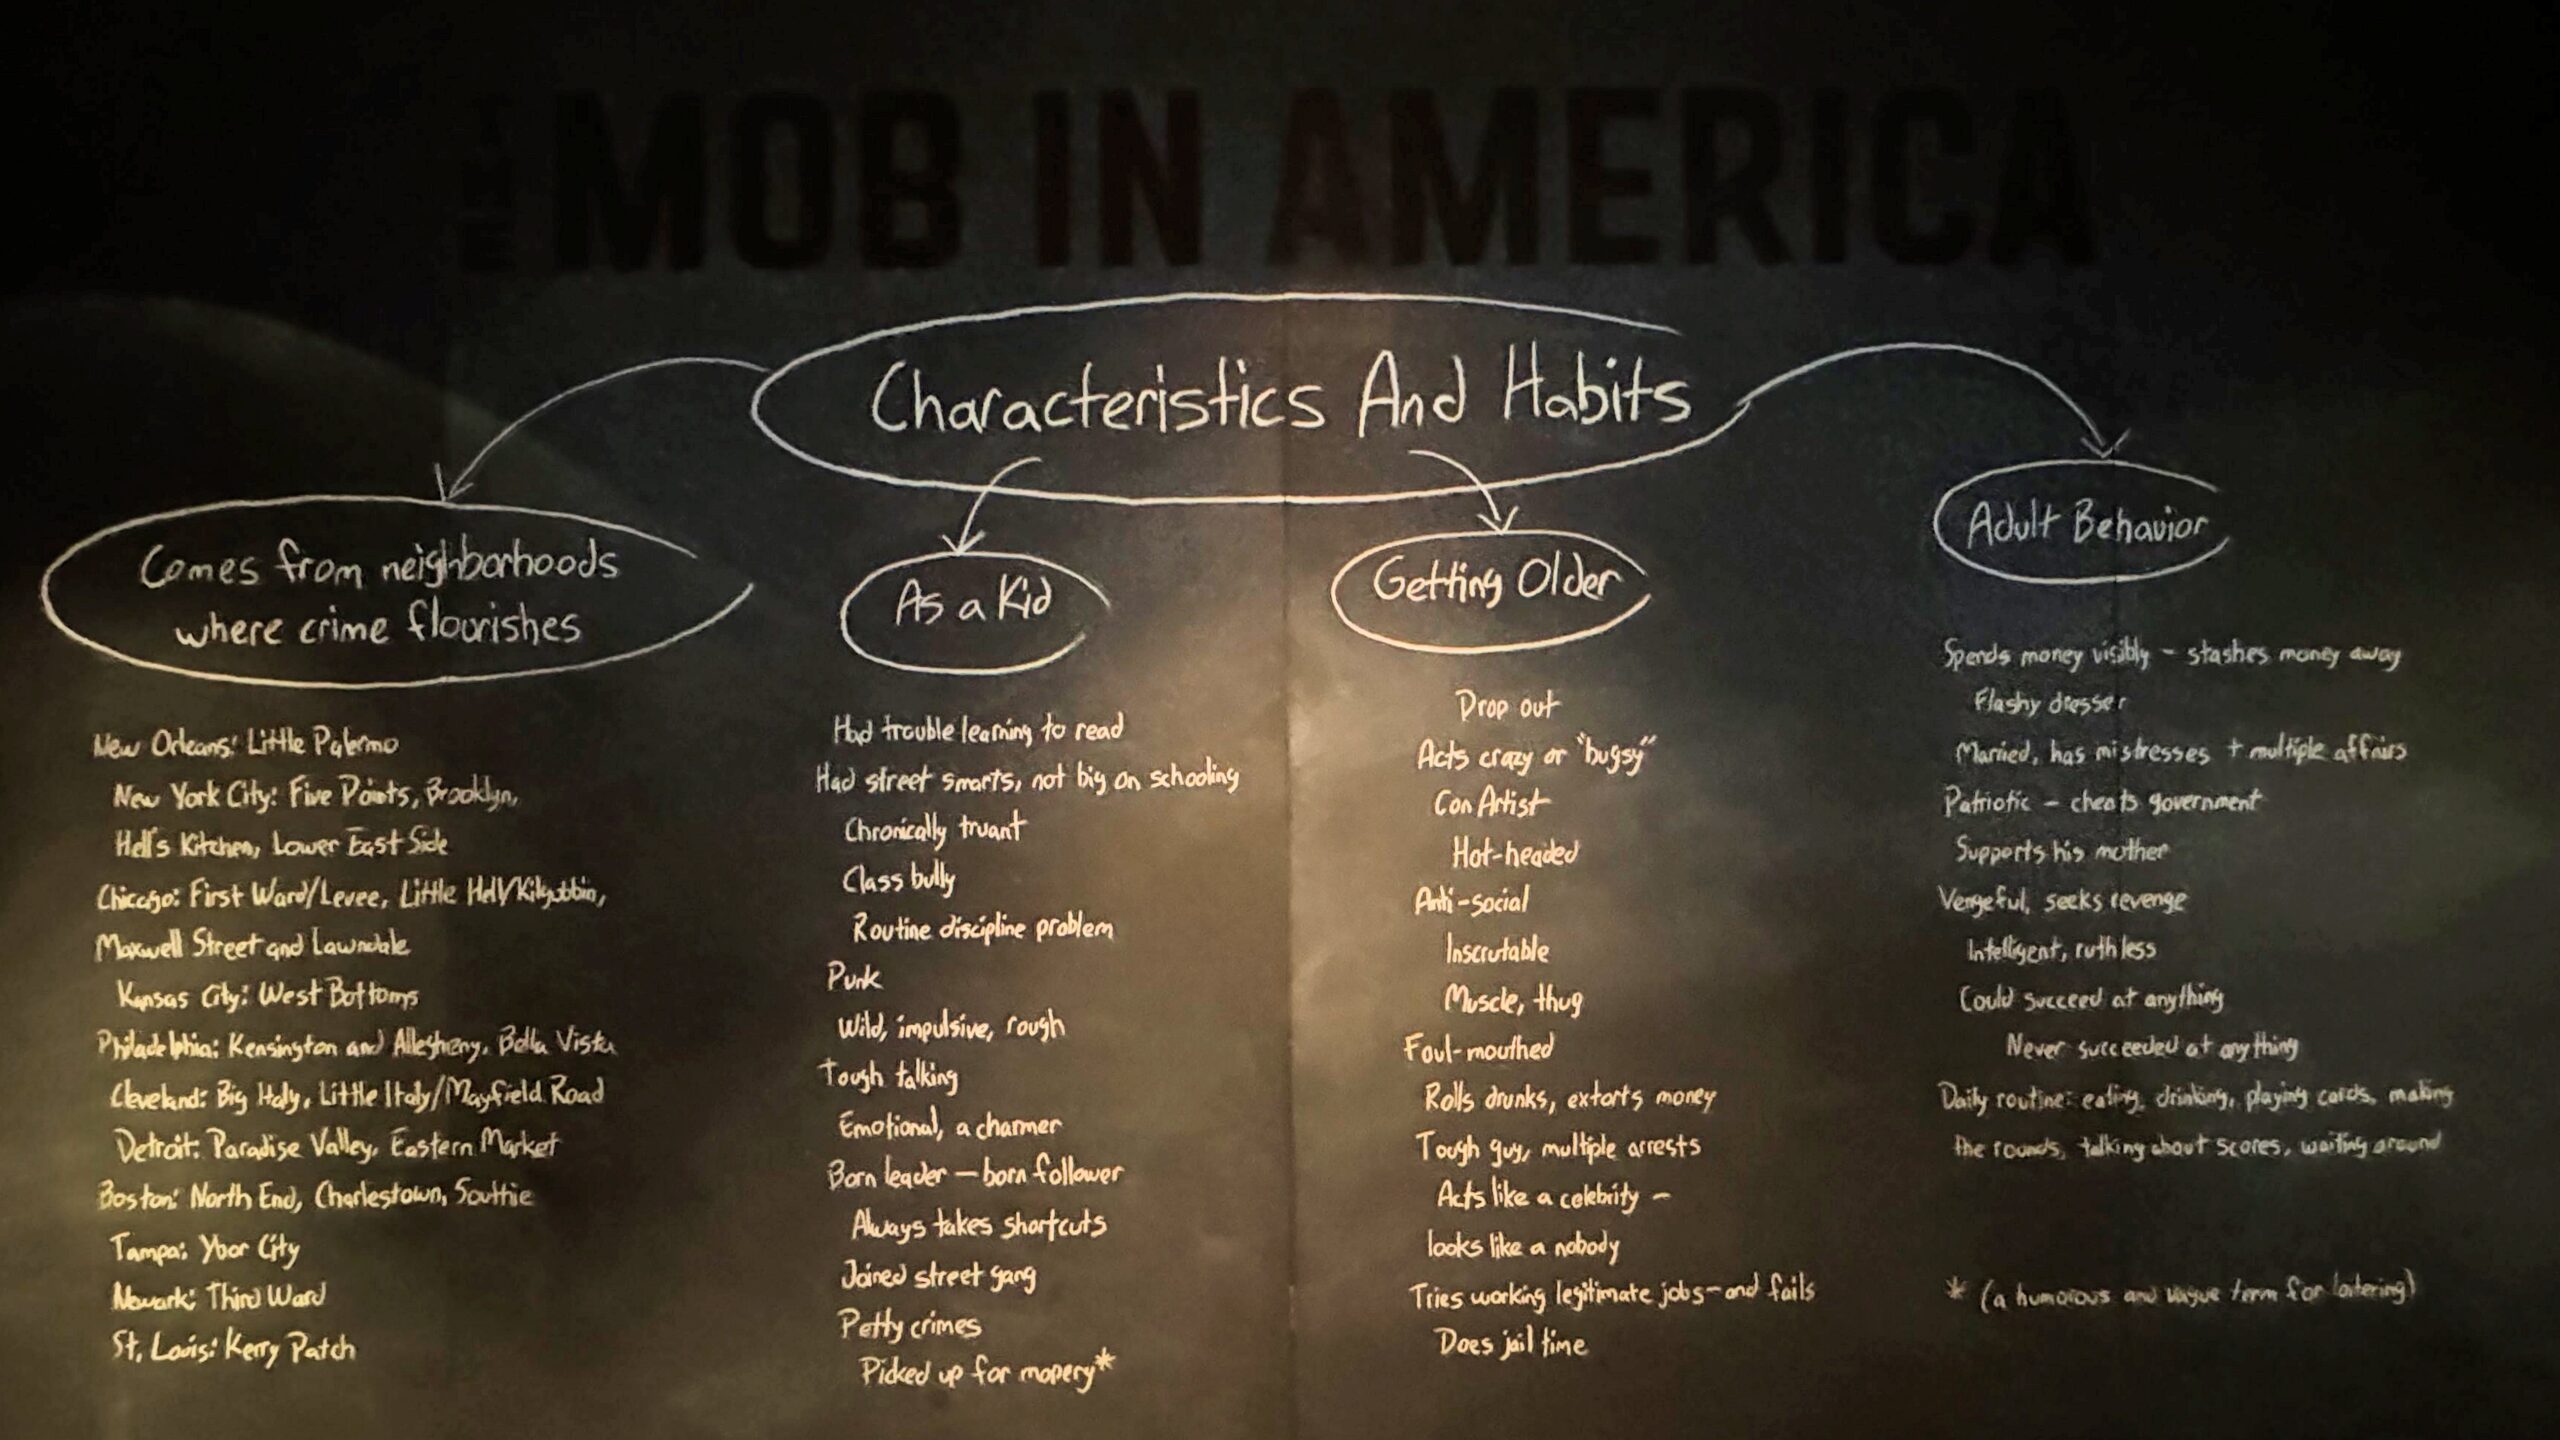 THE MOB IN AMERICA
Characteristics And Habits
Comes from neighborhoods
where crime flourishes
New Orleans: Little Palermo
New York City: Five Points, Brooklyn,
Hell's Kitchen, Lower East Side
Chicago: First Ward/Levee, Little Hell/Kilgubbin,
Maxwell Street and Lawndale
Kansas City: West Bottoms
Philadelphia: Kensington and Allegheny, Bella Vista
Cleveland: Big Italy, Little Italy/Mayfield Road
Detroit: Paradise Valley, Eastern Market
Boston: North End, Charlestown, Southie
Tampa: Ybor City
Newark: Third Ward
St. Louis: Kerry Patch
As a Kid
Had trouble learning to read
Had street smarts, not big on schooling
Chronically truant
Class bully
Routine discipline problem
Punk
Wild, impulsive, rough
Tough talking
Emotional, a charmer
Born leader – born follower
Always takes shortcuts
Joined street gang
Petty crimes
Picked up for mopery*
Getting Older
Drop out
Acts crazy or "bugsy"
Con Artist
Hot-headed
Anti-social
Inscrutable
Muscle, thug
Foul-mouthed
Rolls drunks, extorts money
Tough guy, multiple arrests
Acts like a celebrity –
looks like a nobody
Tries working legitimate jobs – and fails
Does jail time
Adult Behavior
Spends money visibly – stashes money away
Flashy dresser
Married, has mistresses + multiple affairs
Patriotic – cheats government
Supports his mother
Vengeful, seeks revenge
Intelligent, ruthless
Could succeed at anything
Never succeeded at anything
Daily routine: eating, drinking, playing cards, making
the rounds, talking about scores, waiting around
* (a humorous and vague term for loitering)